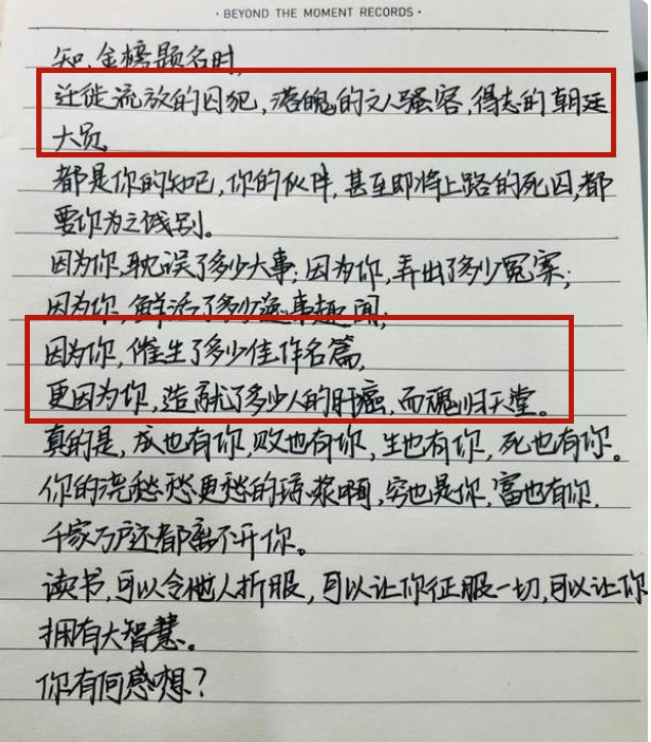 · BEYOND THE MOMENT RECORDS ·
知,金榜题名时,
迁徙流放的囚犯,落魄的文人骚客,得志的朝廷
大员,
都是你的知己,你的伙伴,甚至即将上路的死囚,都
要你为之饯别。
因为你,耽误了多少大事;因为你,弄出了多少冤案;
因为你,鲜活了多少逸事趣闻;
因为你,催生了多少佳作名篇,
更因为你,造就了多少人的肝癌,而魂归天堂。
真的是,成也有你,败也有你,生也有你,死也有你。
你的浇愁愁更愁的琼浆啊,穷也是你,富也有你,
千家万户还都离不开你。
读书,可以令他人折服,可以让你征服一切,可以让你
拥有大智慧。
你有何感想?